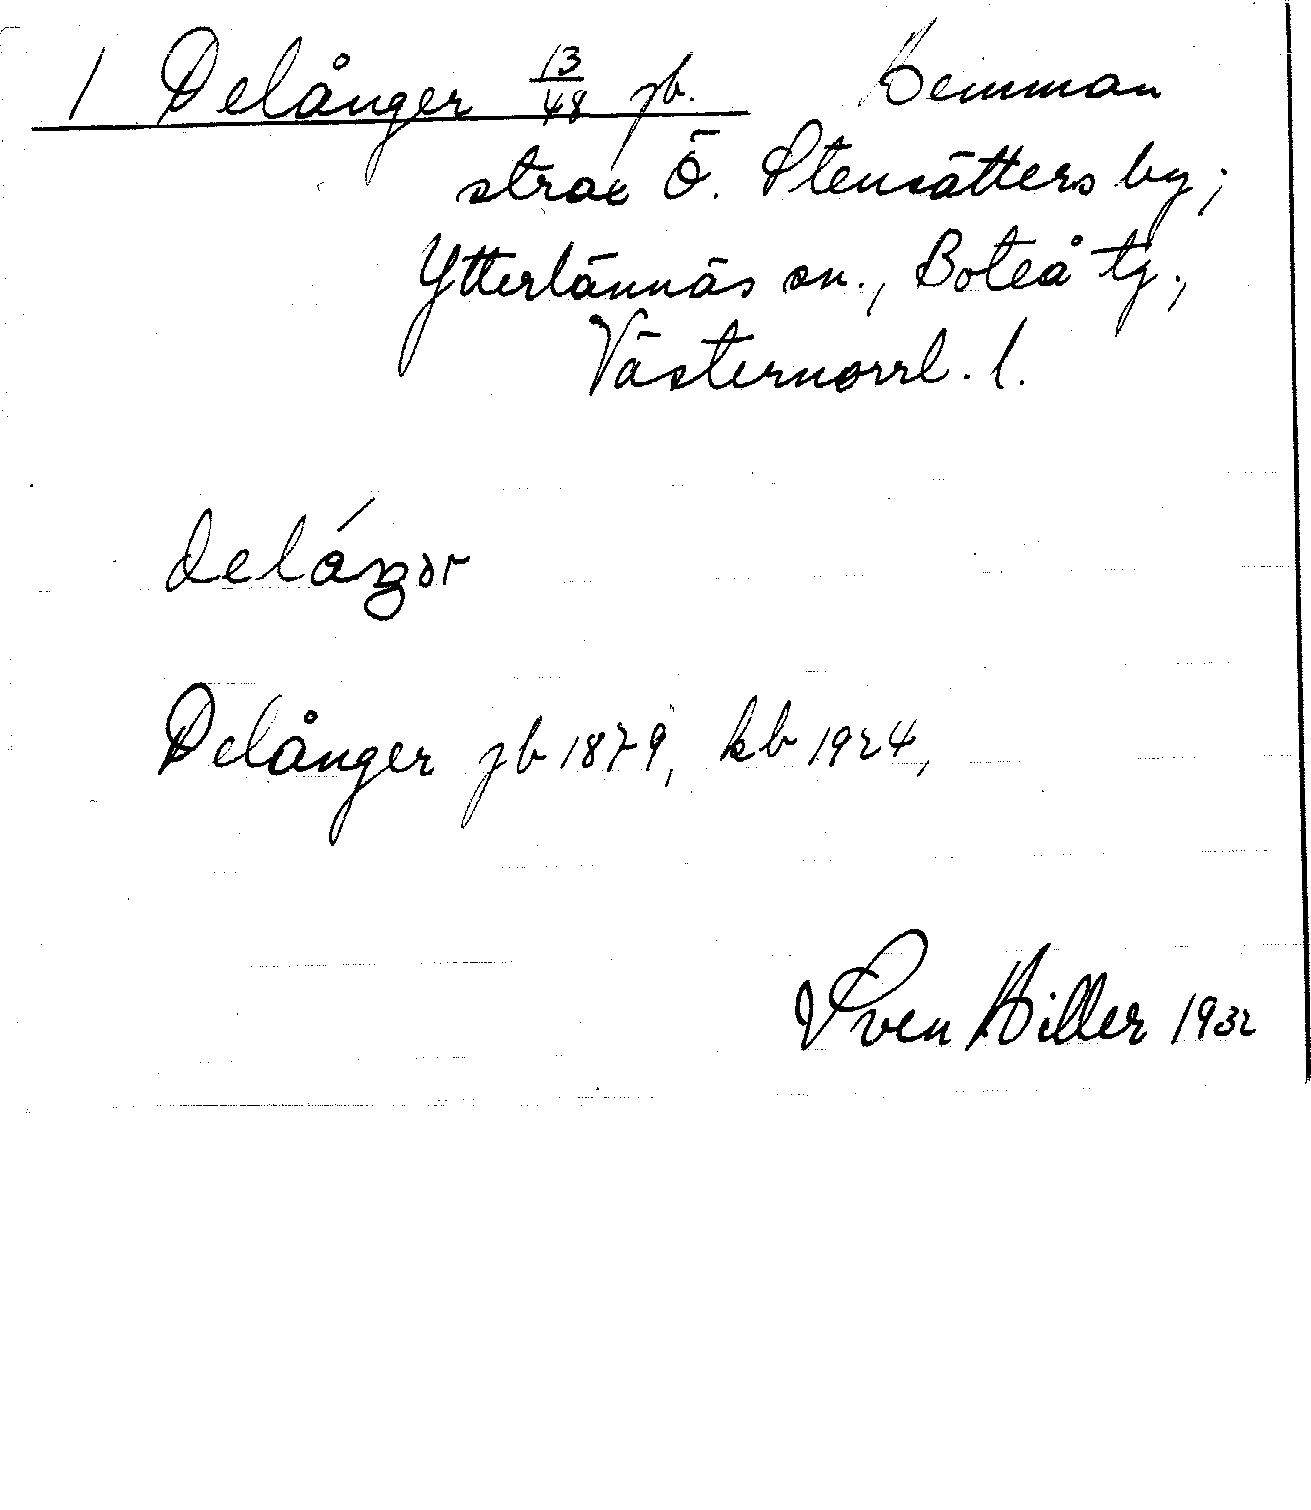 1 Delånger 13/48 jb. Hemman
strax Ö. Stensätters by;
Ytterlännäs sn., Boteå tg.,
Västernorrl. l.
Delånger jb 1879, kb 1924,
Sven Hiller 1932